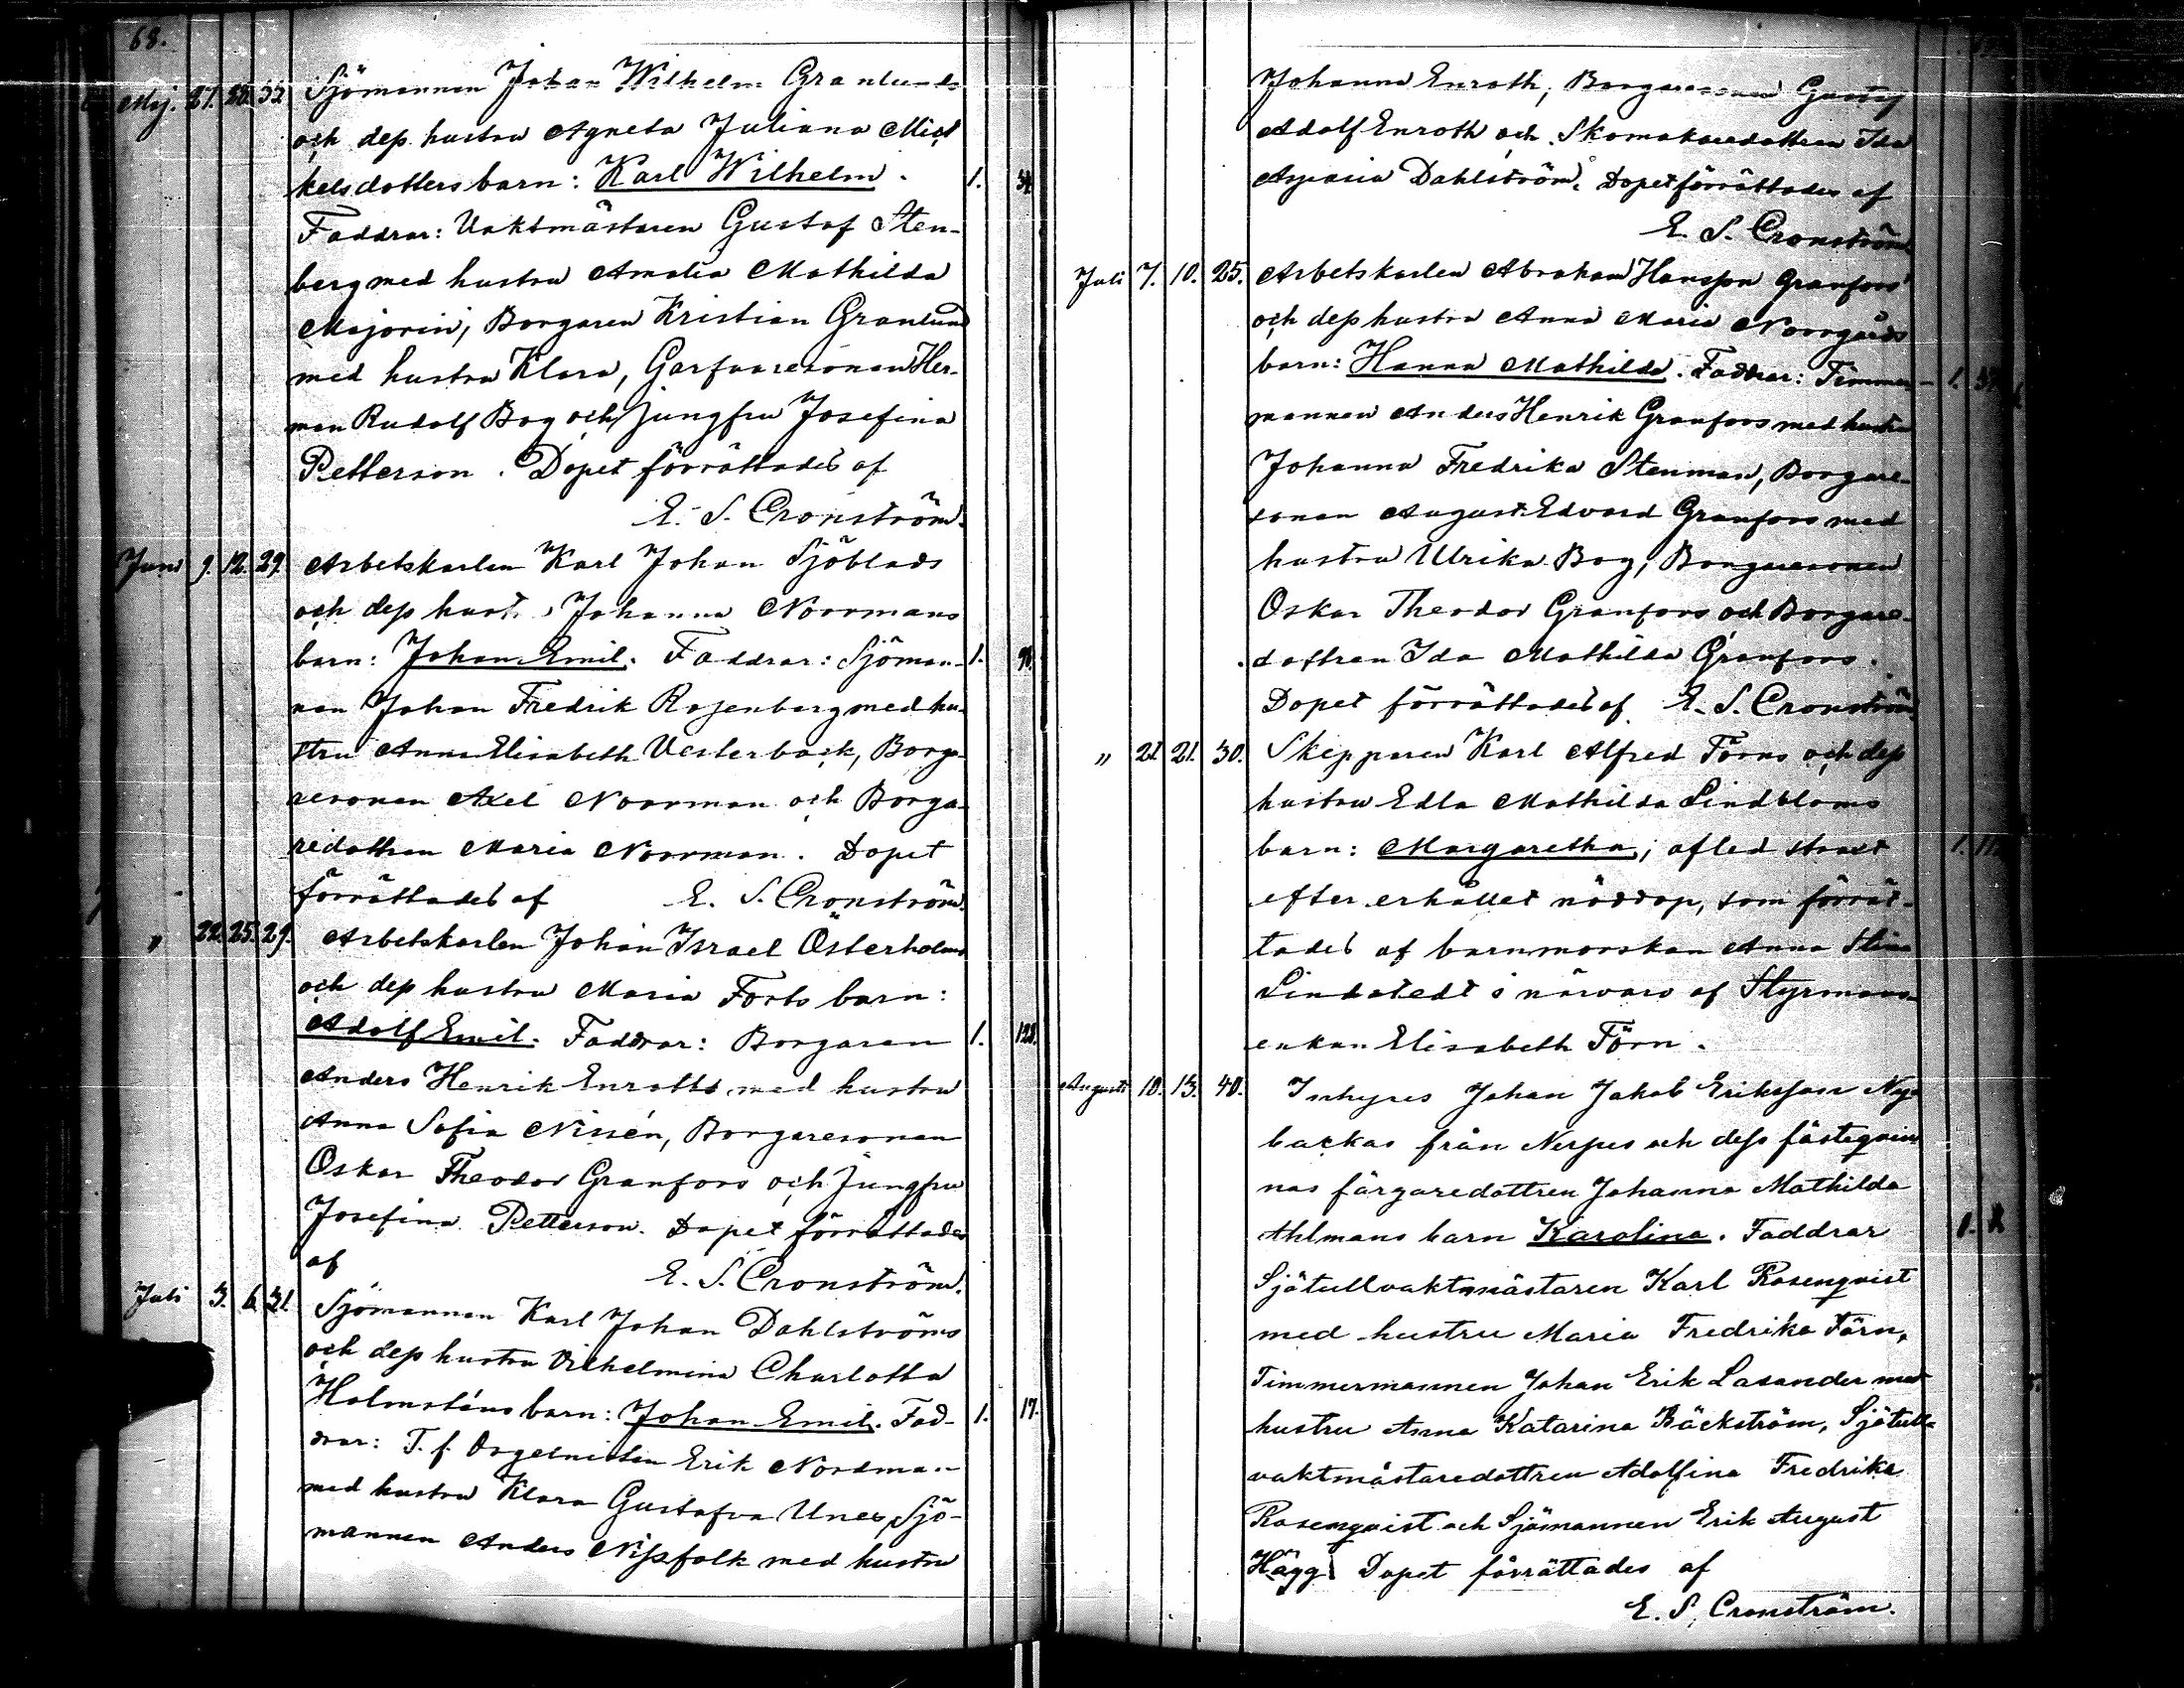 68.
Maj. 27. 28. 33 Sjömannen Johan Wilhelm Granlunds
och dess hustru Agneta Juliana Mick
kelsdotters barn: Karl Wilhelm. 1. 34.
Faddrar: Vaktmästaren Gustaf Sten-
berg med hustru Amalia Mathilda
Majorin, Borgaren Kristian Granlund
med hustru Klara, Garfvaresonen Her-
man Rudolf Bog och jungfru Josefina
Petterson. Dopet förrättades af
E. S. Cronström.
Juni 9. 12. 29. Arbetskarlen Karl Johan Sjöblads
och dess hustr. Johanna Noormans
barn: Johan Emil. Faddrar: Sjöman- 1.
nen Johan Fredrik Rosenberg med hu-
stru Anna Elisabeth Vesterback, Borga-
resonen Axel Noorman och Borga-
redottren Maria Noorman. Dopet
förrättades af E. S. Cronström.
" 22. 25. 29. Arbetskarlen Johan Israel Österholms
och dess hustru Maria Forts barn:
Adolf Emil. Faddrar: Borgaren 1. 128.
Anders Henrik Enroth med hustru
Anna Sofia Nissén, Borgaresonen
Oskar Theodor Granfors och Jungfru
Josefina Petterson. Dopet förrättades
af E. S. Cronström.
Juli 3. 6. 31. Sjömannen Karl Johan Dahlströms
och dess hustru Vilhelmina Charlotta
Holmsténs barn: Johan Emil. Fad- 1. 17.
drar: T. f. Orgelnisten Erik Nordman
med hustru Klara Gustafva Unes, Sjö-
mannen Anders Nissfolk med hustru
Johanna Enroth, Borgaresonen Gustaf
Adolf Enroth och Skomakaredottren Ida
Aspasia Dahlström. Dopet förrättades af
E. S. Cronström
Juli 7. 10. 25. Arbetskarlen Abraham Hansson Granfors
och dess hustru Anna Maria Norrgårds
barn: Hanna Mathilda. Faddrar: Timmer- 1.
mannen Anders Henrik Granfors med hustru
Johanna Fredrika Stenman, Borgare-
sonen August Edvard Granfors med
hustru Ulrika Bog, Borgaresonen
Oskar Theodor Granfors och Borgare-
dottren Ida Mathilda Granfors.
Dopet förrättades af E. S. Cronström.
" 21. 21. 30. Skepparen Karl Alfred Törns och dess
hustru Edla Mathilda Lindbloms
barn: Margaretha; afled straxt 1.
efter erhållet nöddop, som förrät-
tades af barnmorskan Anna Stina
Lindstedt i närvaro af Styrmans-
enkan Elisabeth Törn.
Augusti 10. 13. 40. Inhyses Johan Jakob Eriksson Ny-
backas från Nerpes och dess fästeqvin
nas färgaredottren Johanna Mathilda
Ahlmans barn Karolina. Faddrar 1.
Sjötullvaktmästaren Karl Rosenqvist
med hustru Maria Fredrika Törn,
Timmermannen Johan Erik Lasander med
hustru Anna Katarina Bäckström, Sjötull-
vaktmästaredottren Adolfina Fredrika
Rosenqvist och Sjömannen Erik August
Hägg. Dopet förrättades af
E. S. Cronström.